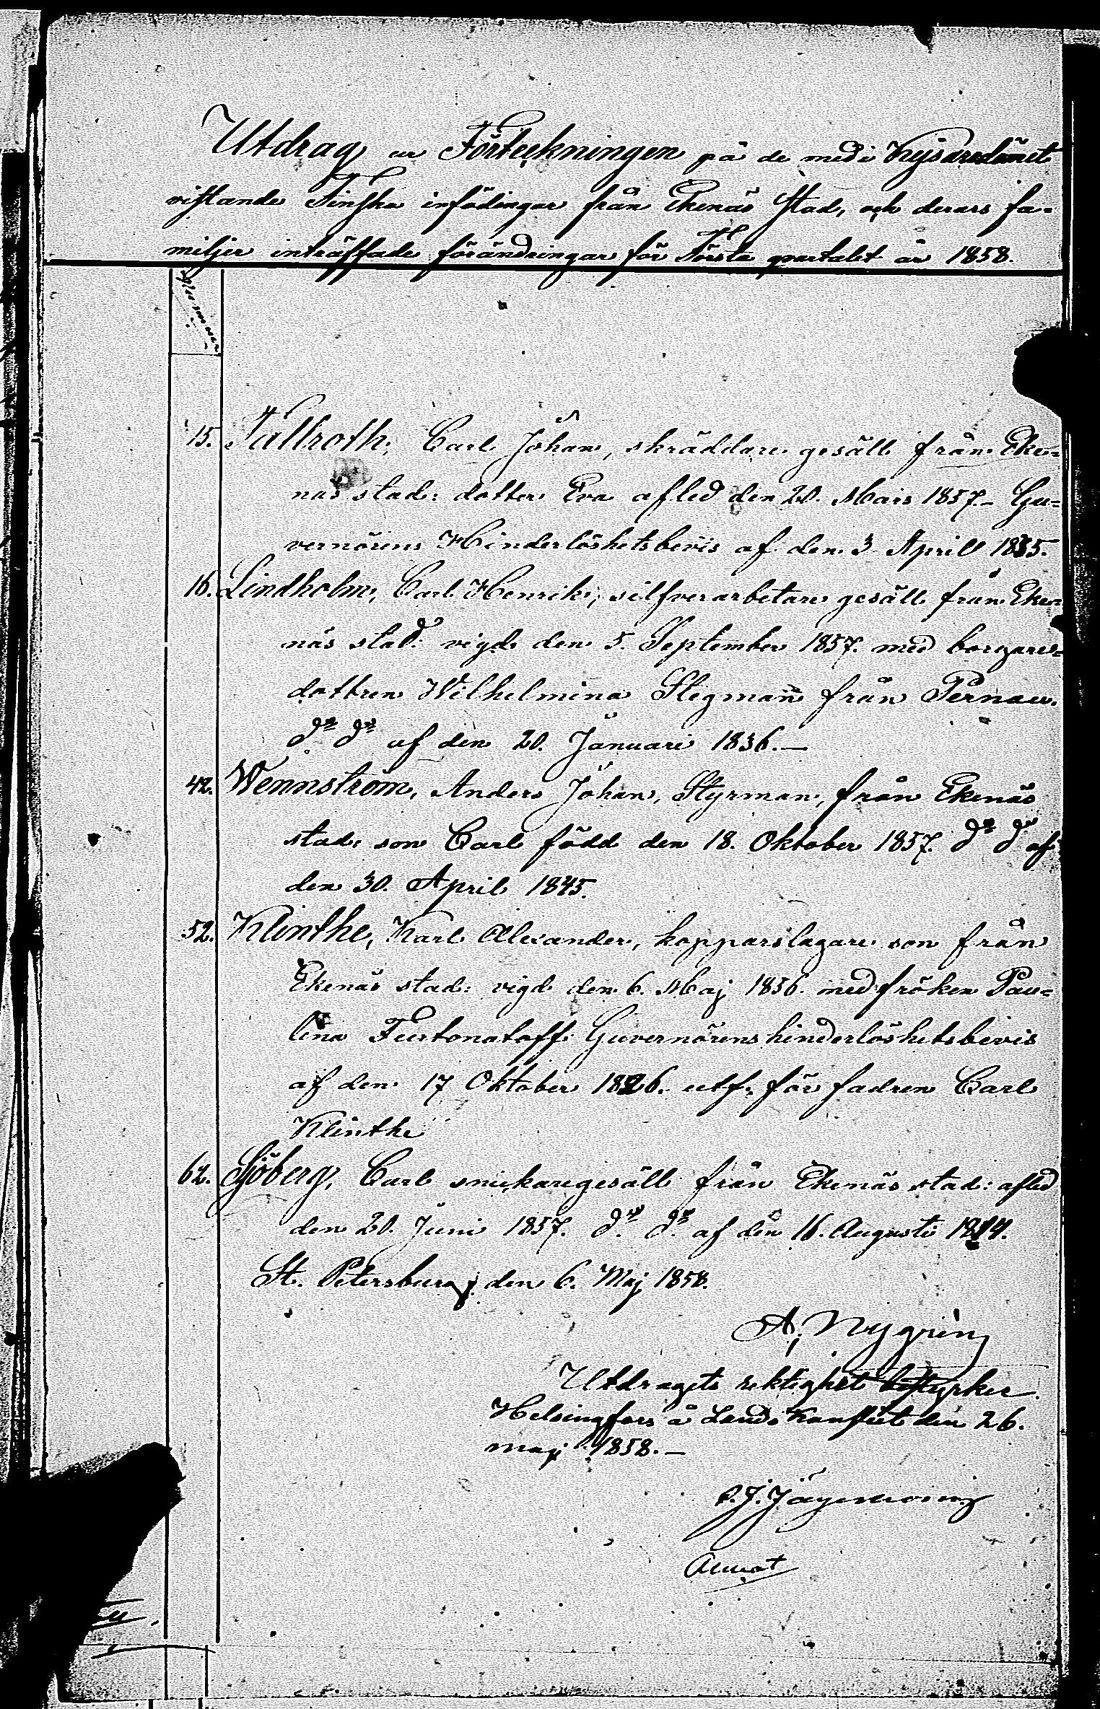 Utdrag ur Förteckningen på de med i Kejsaredömet
vistande Finska infödingar från Ekenäs Stad, och derars fa-
miljer inträffade förändringar för Första qvartalet år 1858.
Nummer
15. Tallroth, Carl Johan, skräddare gesäll från Eke-
näs stad: dotter Eva afled den 20. Mars 1857. – Gu-
vernörens Hinderlöshetsbevis af den 3 Aprill 1855.
16. Lindholm, Carl Henrik, silfverarbetare gesäll från Eke-
näs stad: vigd den 5. September 1857. med borgare-
dottren Wilhelmina Stegmann från Pernau.
do do af den 20. Januari 1836. –
42. Wennström, Anders Johan, Styrman, från Ekenäs
stad: son Carl född den 18. Oktober 1857. do do af
den 30. April 1845.
52. Klinthe, Karl Alexander, kopparslagare son från
Ekenäs stad: vigd den 6. Maj 1856. med fröken Pau-
lina Guvernörens hinderlöshetsbevis
af den 17 Oktober 1826. utf: för fadren Carl
Klinthe
62. Sjöberg, Carl snickaregesäll från Ekenäs stad: afled
den 20. Juni 1857. do. do. af den 16. Augusti
St. Petersburg, den 6. Maj 1858.
A. Nygrén
Utdragets riktighet bestyrker
Helsingfors å Lands Kansliet den 26.
maj 1858. –